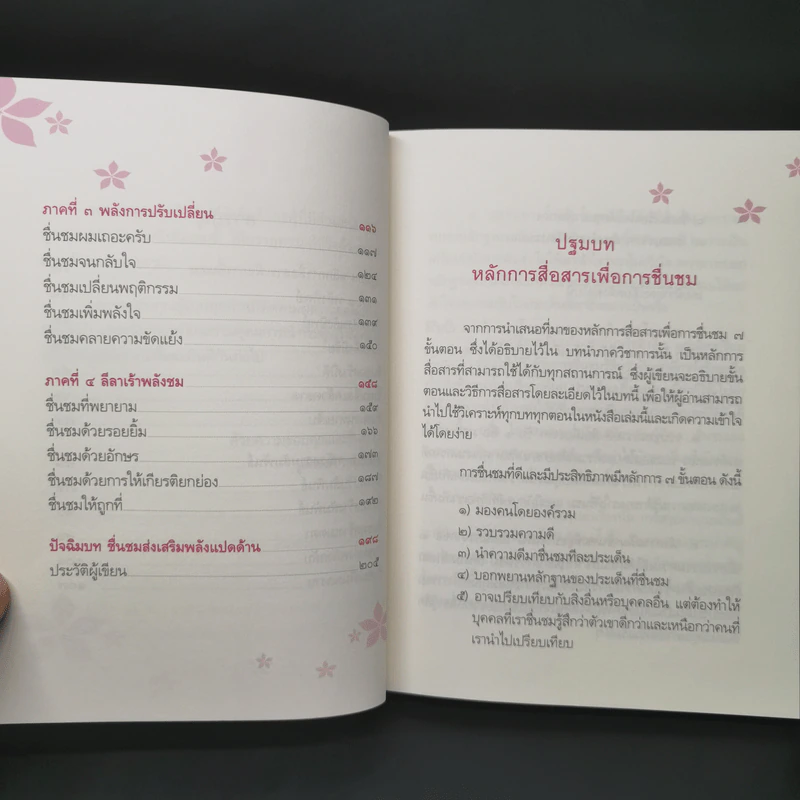 ภาคที่ ๓ พลังการปรับเปลี่ยน ๑๑๖
ชื่นชมผมเถอะครับ ๑๑๗
ชื่นชมจนกลับใจ ๑๒๔
ชื่นชมเปลี่ยนพฤติกรรม ๑๓๑
ชื่นชมเพิ่มพลังใจ ๑๓๙
ชื่นชมคลายความขัดแย้ง ๑๕๐
ภาคที่ ๔ ลีลาเร้าพลังชม ๑๕๘
ชื่นชมที่พยายาม ๑๕๙
ชื่นชมด้วยรอยยิ้ม ๑๖๖
ชื่นชมด้วยอักษร ๑๗๓
ชื่นชมด้วยการให้เกียรติยกย่อง ๑๘๗
ชื่นชมให้ถูกที่ ๑๙๒
ปัจฉิมบท ชื่นชมส่งเสริมพลังแปดด้าน ๑๙๘
ประวัติผู้เขียน ๒๐๕
ปฐมบท
หลักการสื่อสารเพื่อการชื่นชม
จากการนำเสนอที่มาของหลักการสื่อสารเพื่อการชื่นชม ๗
ขั้นตอน ซึ่งได้อธิบายไว้ใน บทนำภาควิชาการนั้น เป็นหลักการ
สื่อสารที่สามารถใช้ได้กับทุกสถานการณ์ ซึ่งผู้เขียนจะอธิบายขั้น
ตอนและวิธีการสื่อสารโดยละเอียดไว้ในบทนี้ เพื่อให้ผู้อ่านสามารถ
นำไปใช้วิเคราะห์ทุกบททุกตอนในหนังสือเล่มนี้และเกิดความเข้าใจ
ได้โดยง่าย
การชื่นชมที่ดีและมีประสิทธิภาพมีหลักการ ๗ ขั้นตอน ดังนี้
๑) มองคนโดยองค์รวม
๒) รวบรวมความดี
๓) นำความดีมาชื่นชมทีละประเด็น
๔) บอกพยานหลักฐานของประเด็นที่ชื่นชม
๕) อาจเปรียบเทียบกับสิ่งอื่นหรือบุคคลอื่น แต่ต้องทำให้
บุคคลที่เราชื่นชมรู้สึกว่าตัวเขาดีกว่าและเหนือกว่าคนที่
เรานำไปเปรียบเทียบ